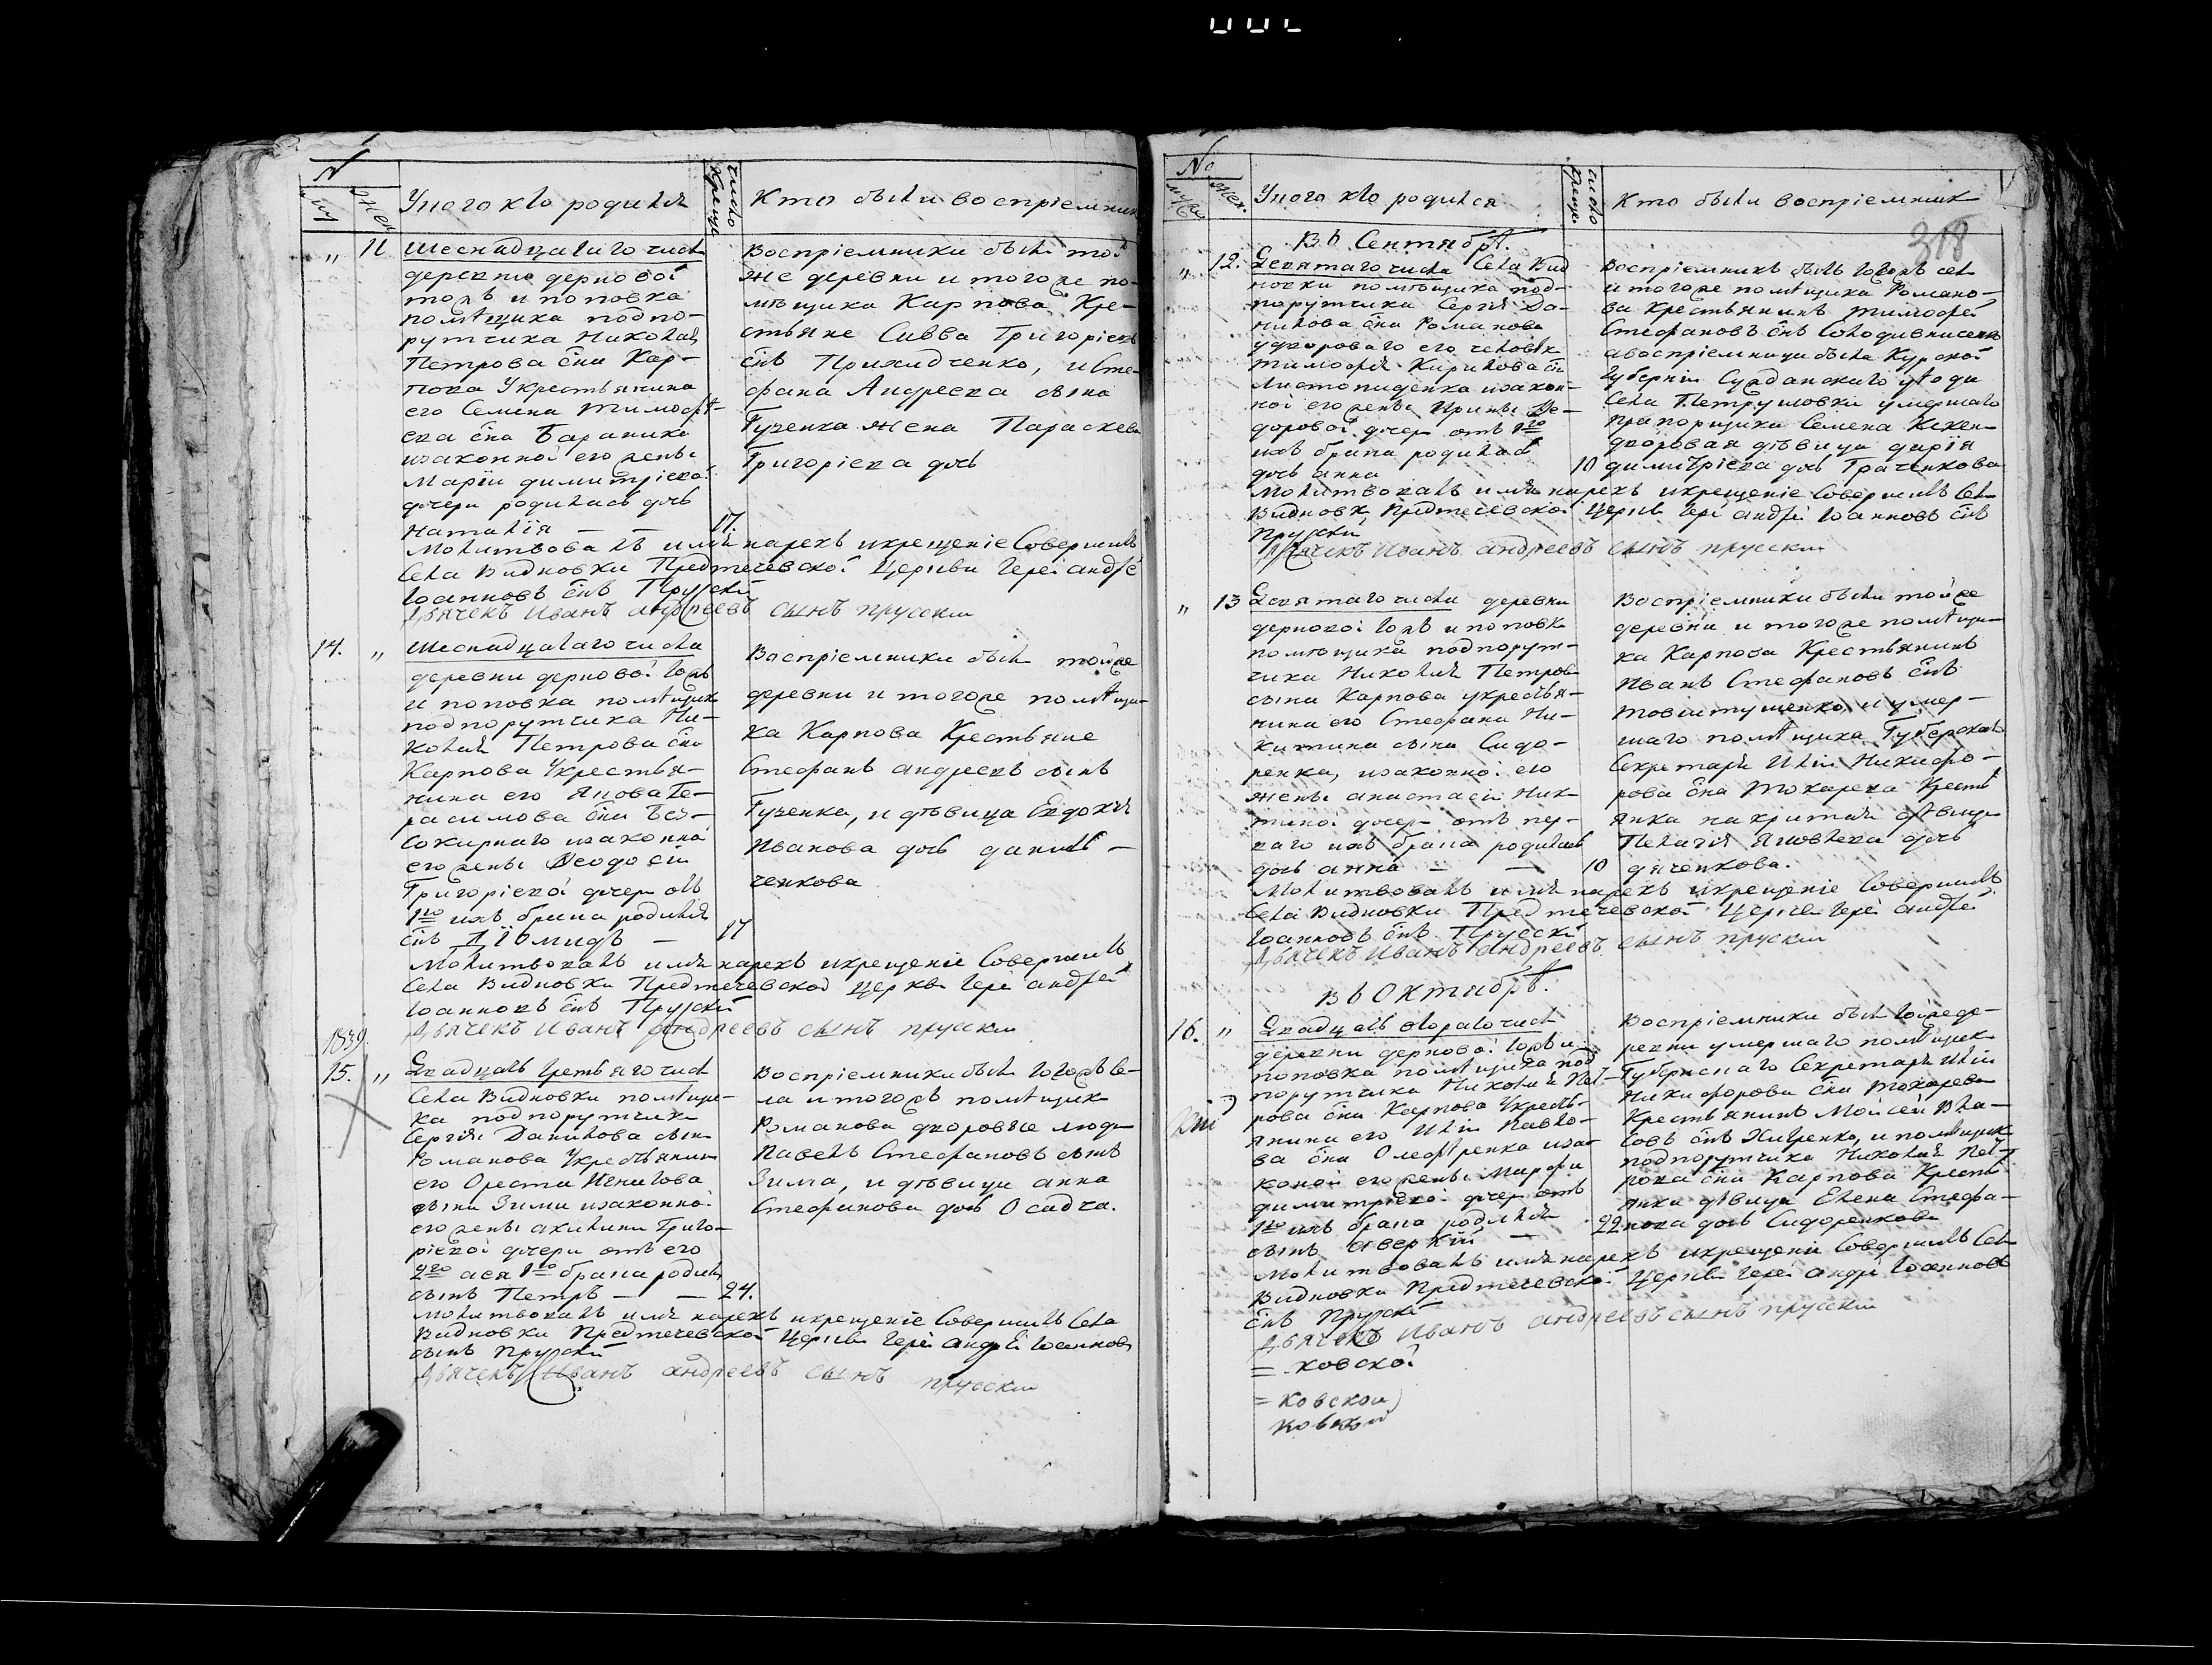 №
муж
жен
У кого кто родился
число крещ.
Кто были восприемники
" 11
Шеснадцатаго числа
деревни дерновой
тожъ и поповка
помѣщика подпо-
рутчика Николая
Петрова сна Кар-
пова Укрестьянина
его Семена Тимофѣ-
ева сна Бараника
изаконной его жены
Маріи димитріевой
дочери родилась дочь
Наталія — — 17.
Воспріемники были той
же деревни и тогоже по-
мѣщика Карпова Кре-
стьяне Савва Григоріевъ
снъ Прихидченко, и Сте-
фана Андреева сына
Гученка жена Параскева
Григоріева дочь
Молитвовалъ имя нарекъ икрещеніе Совершилъ
Села Видновки Предтечевской Церкви Іерей андрей
Іоанновъ снъ Прусскій
Дьячекъ Иванъ андреевъ сынъ прусскии
14. "
Шеснадцатаго числа
деревни дерновой тожъ
и поповка помѣщика
подпорутчика Ни-
колая Петрова сна
Карпова Укрестья-
нина его Якова Ге-
расимова сна Без-
сокирнаго изаконной
его жены Феодосіи
Григоріевой дочери отъ
1го ихъ брака родился
снъ Діомидъ — 17
Воспріемники были тойже
деревни и тогоже помѣщи-
ка Карпова Крестьяне
Стефанъ андреевъ сынъ
Гученка, и дѣвица Евдокія
Иванова дочь данил-
ченкова
Молитвовалъ имя нарекъ икрещеніе Совершилъ
Села Видновки Предтечевской Церкви Іерей андрей
Іоанновъ снъ Прусскій
Дьячекъ Иванъ андреевъ сынъ прусскии
1839.
15. "
Двадцать третьяго числа
Села Видновки помѣщи-
ка подпорутчика
Сергія Данилова сына
Романова Укрестьянина
его Ореста Игнатова
сына Зимы изаконной
его жены акилины Григо-
ріевой дочери отъ его
2го а ея 1го брака родился
сынъ Петръ — — 24.
Воспріемники были тогожъ се-
ла и тогожъ помѣщика
Романова дворовые люди
Павелъ Стефановъ сынъ
Зима, и дѣвица анна
Стефанова дочь Осадча.
Молитвовалъ имя нарекъ икрещеніе Совершилъ Села
Видновки Предтечевской Церкви Іерей андрей Іоанновъ
сынъ Прусскій
Дьячекъ Иванъ андреевъ сынъ прусскии
№
муж
жен.
У кого кто родился
число крещ.
Кто были воспріемники
318
Въ Сентябрѣ.
" 12.
Девятаго числа Села Вид
новки помѣщика под-
порутчика Сергія Да-
нилова сна Романова
удвороваго его человѣка
Тимофея Кирилова сна
Листопаденка изакон-
ной его жены Ирины Фе-
доровой дочери отъ 1го
ихъ брака родилась
дочь анна 10
Воспріемникъ былъ тогожъ села
и тогоже помѣщика Романо-
ва Крестьянинъ Тимофей
Стефановъ снъ
авоспріемница была Курской
Губерніи Суджанскаго уѣзда
Села Петрушовки умершаго
Прапорщика Семена
дворовая дѣвица дарія
димитріева дочь Граченкова
Молитвовалъ имя нарекъ икрещеніе Совершилъ Села
Видновки Предтечевской Церкви Іерей андрей Іоанновъ снъ
Прусскій
Дьячекъ Иванъ андреевъ сынъ прусскии
" 13
Девятаго числа деревни
дерновой тожъ и поповка
помѣщика подпорут-
чика Николая Петрова
сына Карпова укрестья-
нина его Стефана Ни-
китина сына Сидо-
ренка, изаконной его
жены анастасіи Ник-
тиной дочери отъ пер-
ваго ихъ брака родилась
дочь анна — — 10
Воспріемники были тойже
деревни и тогоже помѣщи-
ка Карпова Крестьянинъ
Иванъ Стефановъ снъ
Товштушенко, и умер-
шаго помѣщика Губернскаго
Секретаря Иліи Никифо-
рова сна Токарева Кресть
янка накритая дѣвица
Пелагія Яковлева дочь
дяченкова.
Молитвовалъ имя нарекъ икрещеніе Совершилъ
Села Видновки Предтечевской Церкви Іерей андрей
Іоанновъ снъ Прусскій
Дьячекъ Иванъ андреевъ сынъ прускии
Въ Октябрѣ.
16. "
Двадцать втораго числа
деревни дерновой тожъ и
поповка помѣщика под
порутчика Николая Пет-
рова сна Карпова Укресть-
янина его Иліи Павло-
ва сна Олефѣренка иза-
конной его жены Марфы
димитріевой дочери отъ
1го ихъ брака родился
сынъ аверкій — 22
Воспріемники были тойже де-
ревни умершаго помѣщика
Губернскаго Секретаря Иліи
Никифорова сна Токарева
Крестьянинъ Моисей Вла-
совъ снъ Хижренко, и помѣщика
подпорутчика Николая Пет-
рова сна Карпова Кресть
янка дѣвица Елена Стефа-
нова дочь Сидоренкова
Молитвовалъ имя нарекъ икрещеніе Совершилъ Села
Видновки Предтечевской Церкви Іерей андрей Іоанновъ
снъ Прусскій
Дьячекъ Иванъ андреевъ сынъ прусскии
= ковской
= ковской
ковской